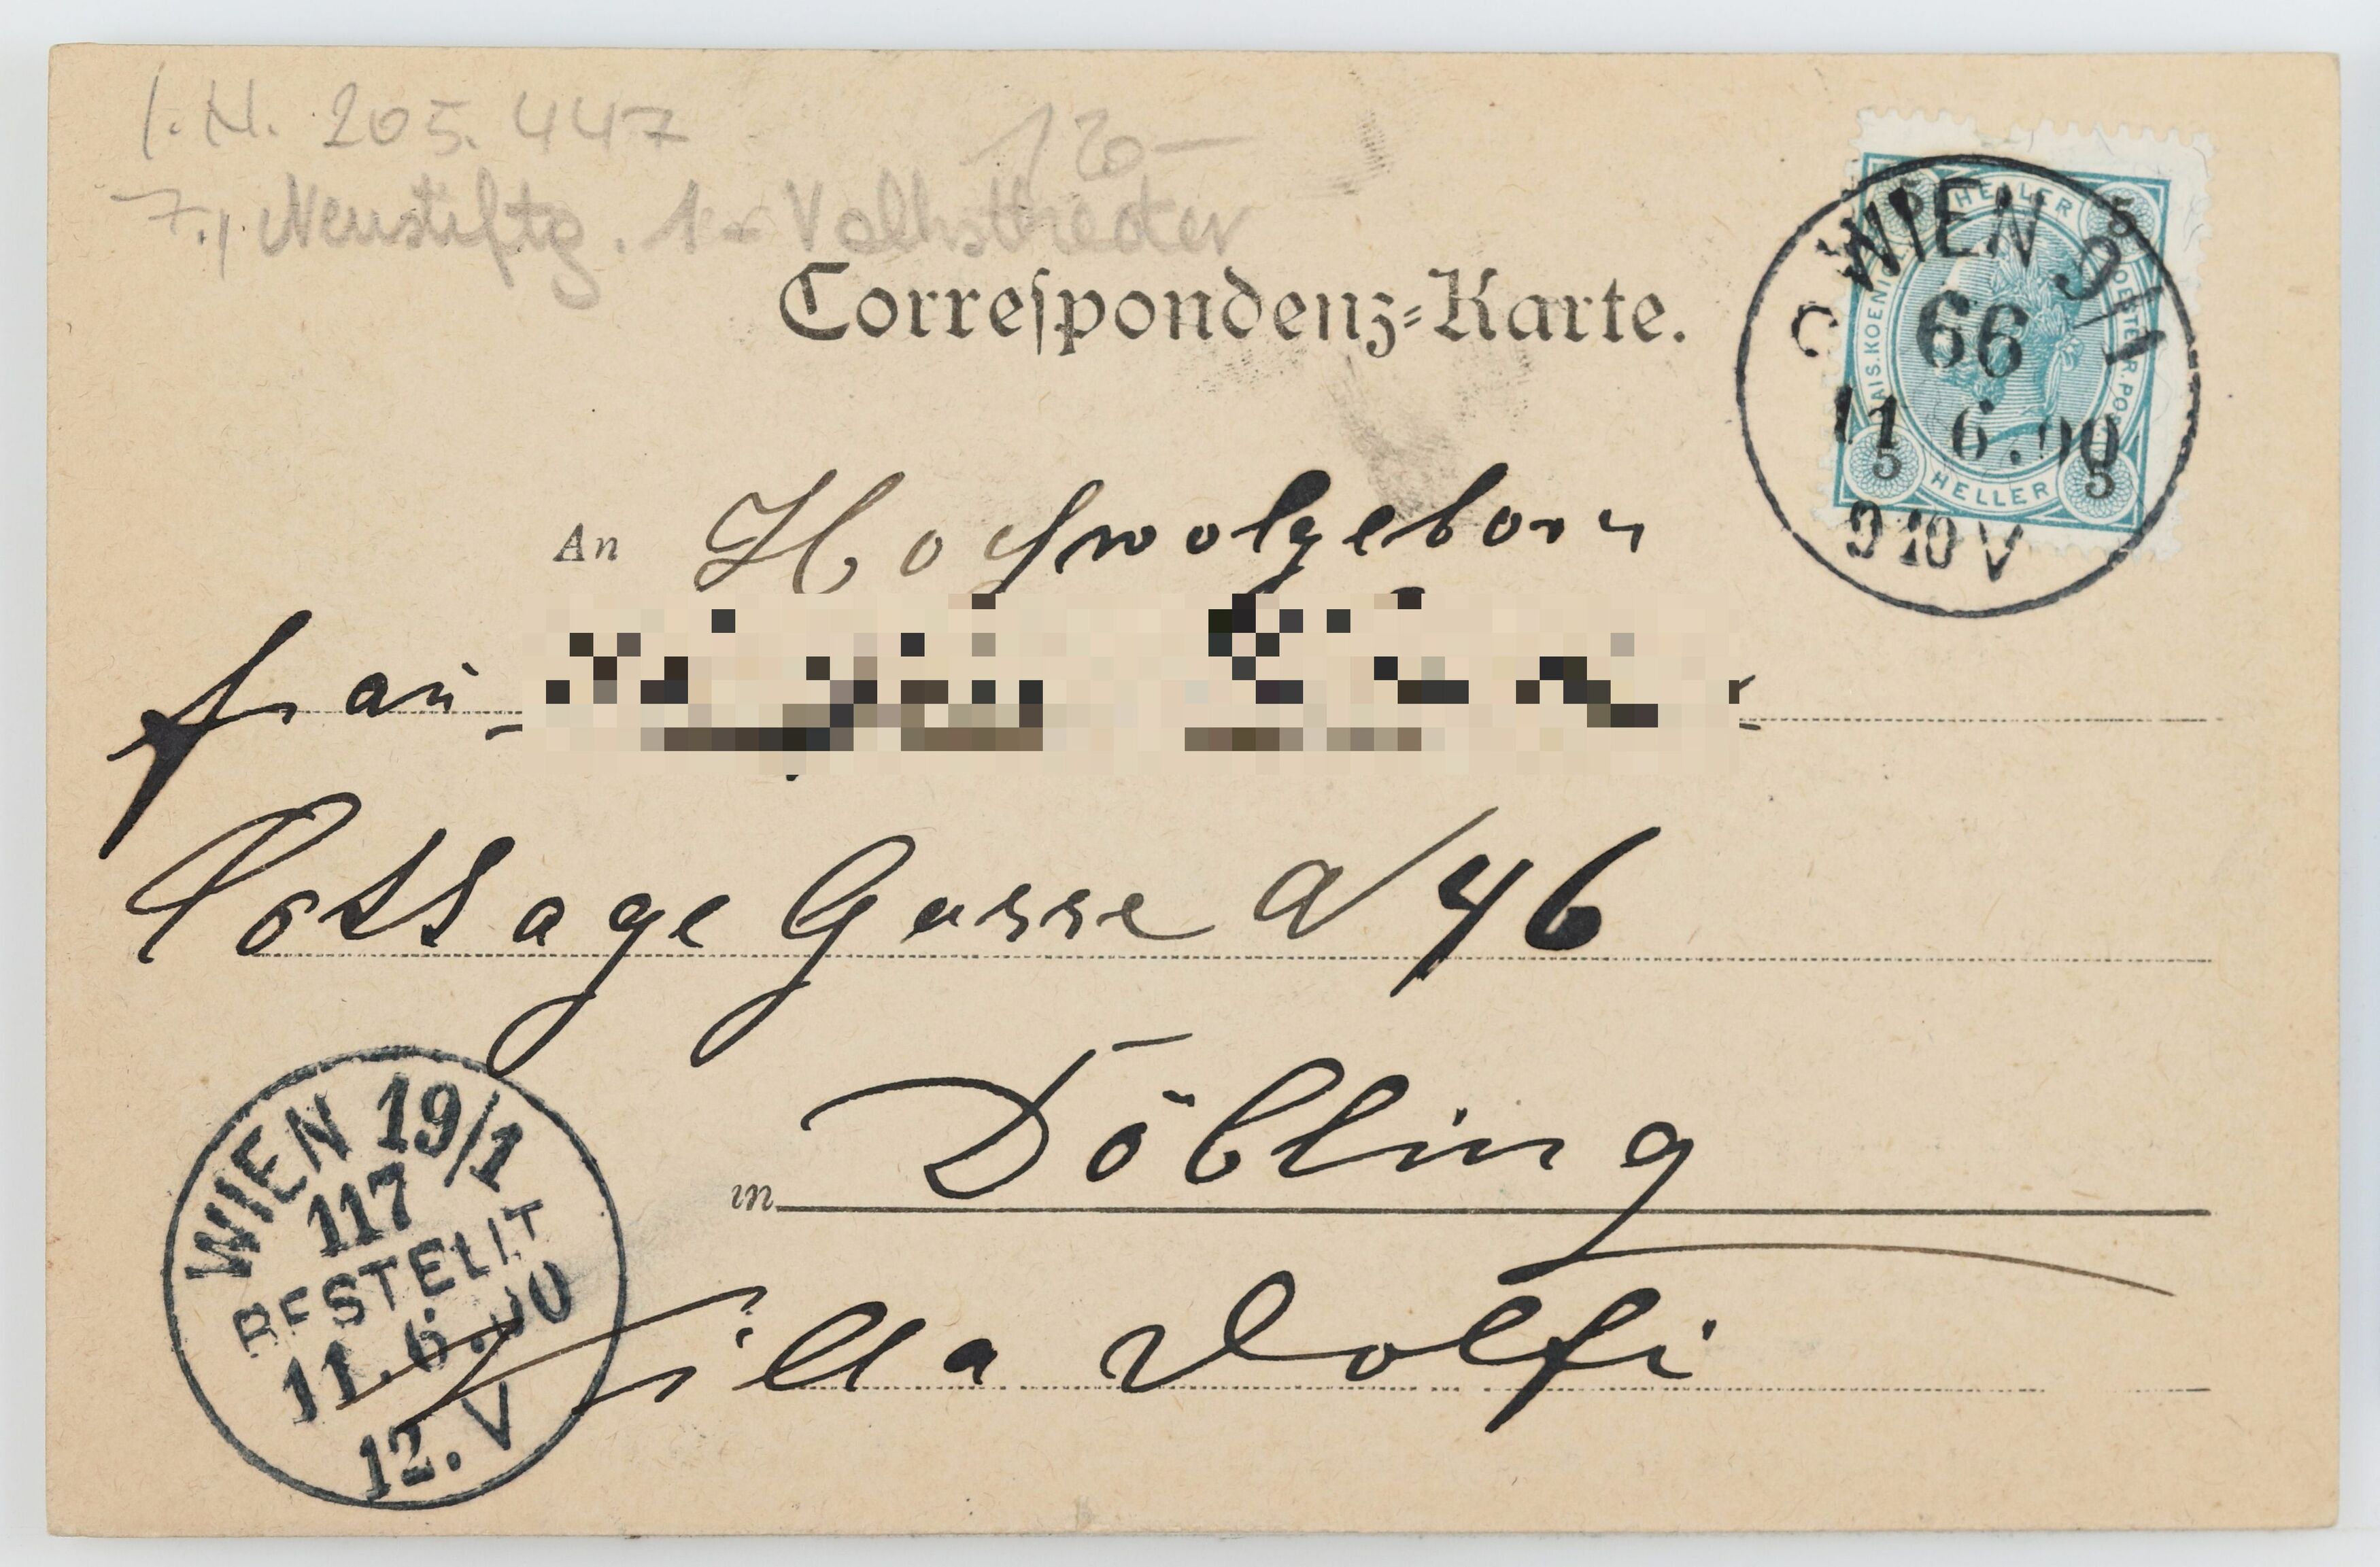 I. N. 205.447
120—
7., Neustiftg. 1 - Volkstheater
Correspondenz-Karte.
WIEN 9/1
66
11 6.00
9 10 V
HELLER
5
KAIS.KOENIGL. OESTERR.POST
5 HELLER 5
An Hochwolgeborn
Frau
Cottage Gasse a/46
in Döbling
Villa Dolfi
WIEN 19/1
117
BESTELLT
11.6.00
12.V